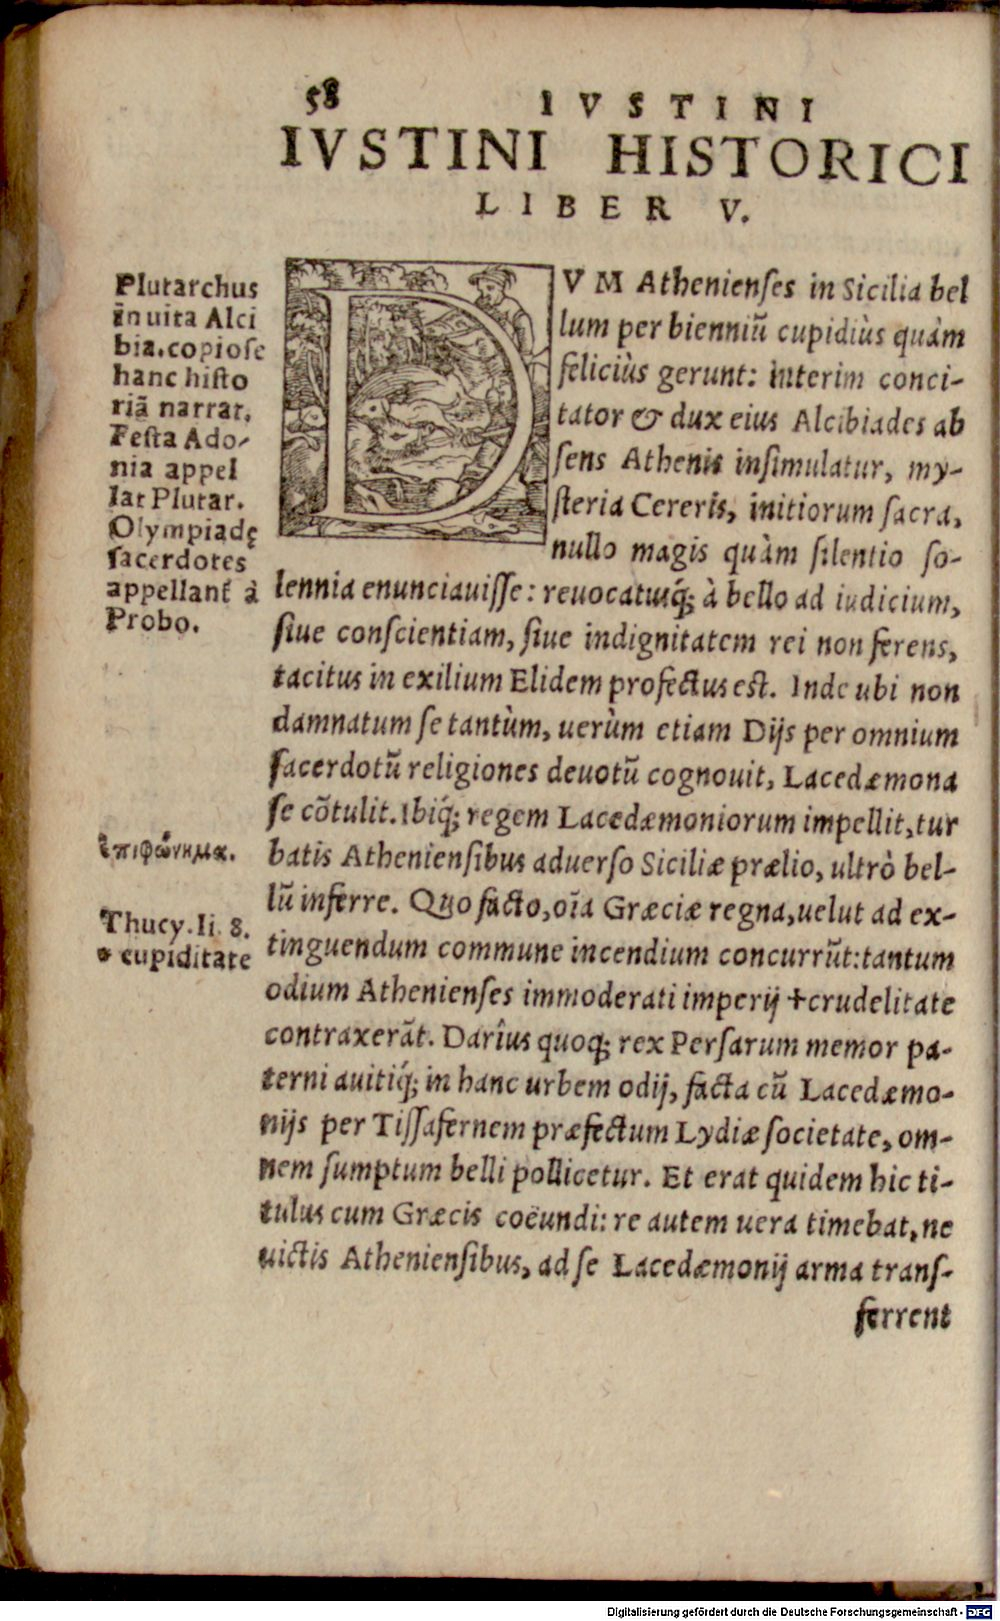 58 IVSTINI
IVSTINI HISTORICI
LIBER V.
DVM Athenienses in Sicilia bel
lum per bienniũ cupidiùs quàm
feliciùs gerunt: interim conci-
tator & dux eius Alcibiades ab
sens Athenis insimulatur, my-
steria Cereris, initiorum sacra,
nullo magis quàm silentio so-
lennia enunciauisse: reuocatusq́; à bello ad iudicium,
siue conscientiam, siue indignitatem rei non ferens,
tacitus in exilium Elidem profectus est. Inde ubi non
damnatum se tantùm, uerùm etiam Dijs per omnium
sacerdotũ religiones deuotũ cognouit, Lacedæmona
se cõtulit. Ibiq́; regem Lacedæmoniorum impellit, tur
batis Atheniensibus aduerso Siciliæ prælio, ultrò bel-
lũ inferre. Quo facto, oĩa Græciæ regna, uelut ad ex-
tinguendum commune incendium concurrũt: tantum
odium Athenienses immoderati imperij +crudelitate
contraxerãt. Darîus quoq; rex Persarum memor pa-
terni auitiq́; in hanc urbem odij, facta cũ Lacedæmo-
nijs per Tissafernem præfectum Lydiæ societate, om-
nem sumptum belli pollicetur. Et erat quidem hic ti-
tulus cum Græcis coëundi: re autem uera timebat, ne
uictis Atheniensibus, ad se Lacedæmonij arma trans-
ferrent
Plutarchus
in uita Alci
bia. copiose
hanc histo
riã narrat.
Festa Ado-
nia appel
lat Plutar.
Olympiadę
sacerdotes
appellant à
Probo.
ἐπιφώνημα.
Thucy. li. 8.
cupiditate
Digitalisierung gefördert durch die Deutsche Forschungsgemeinschaft - DFG